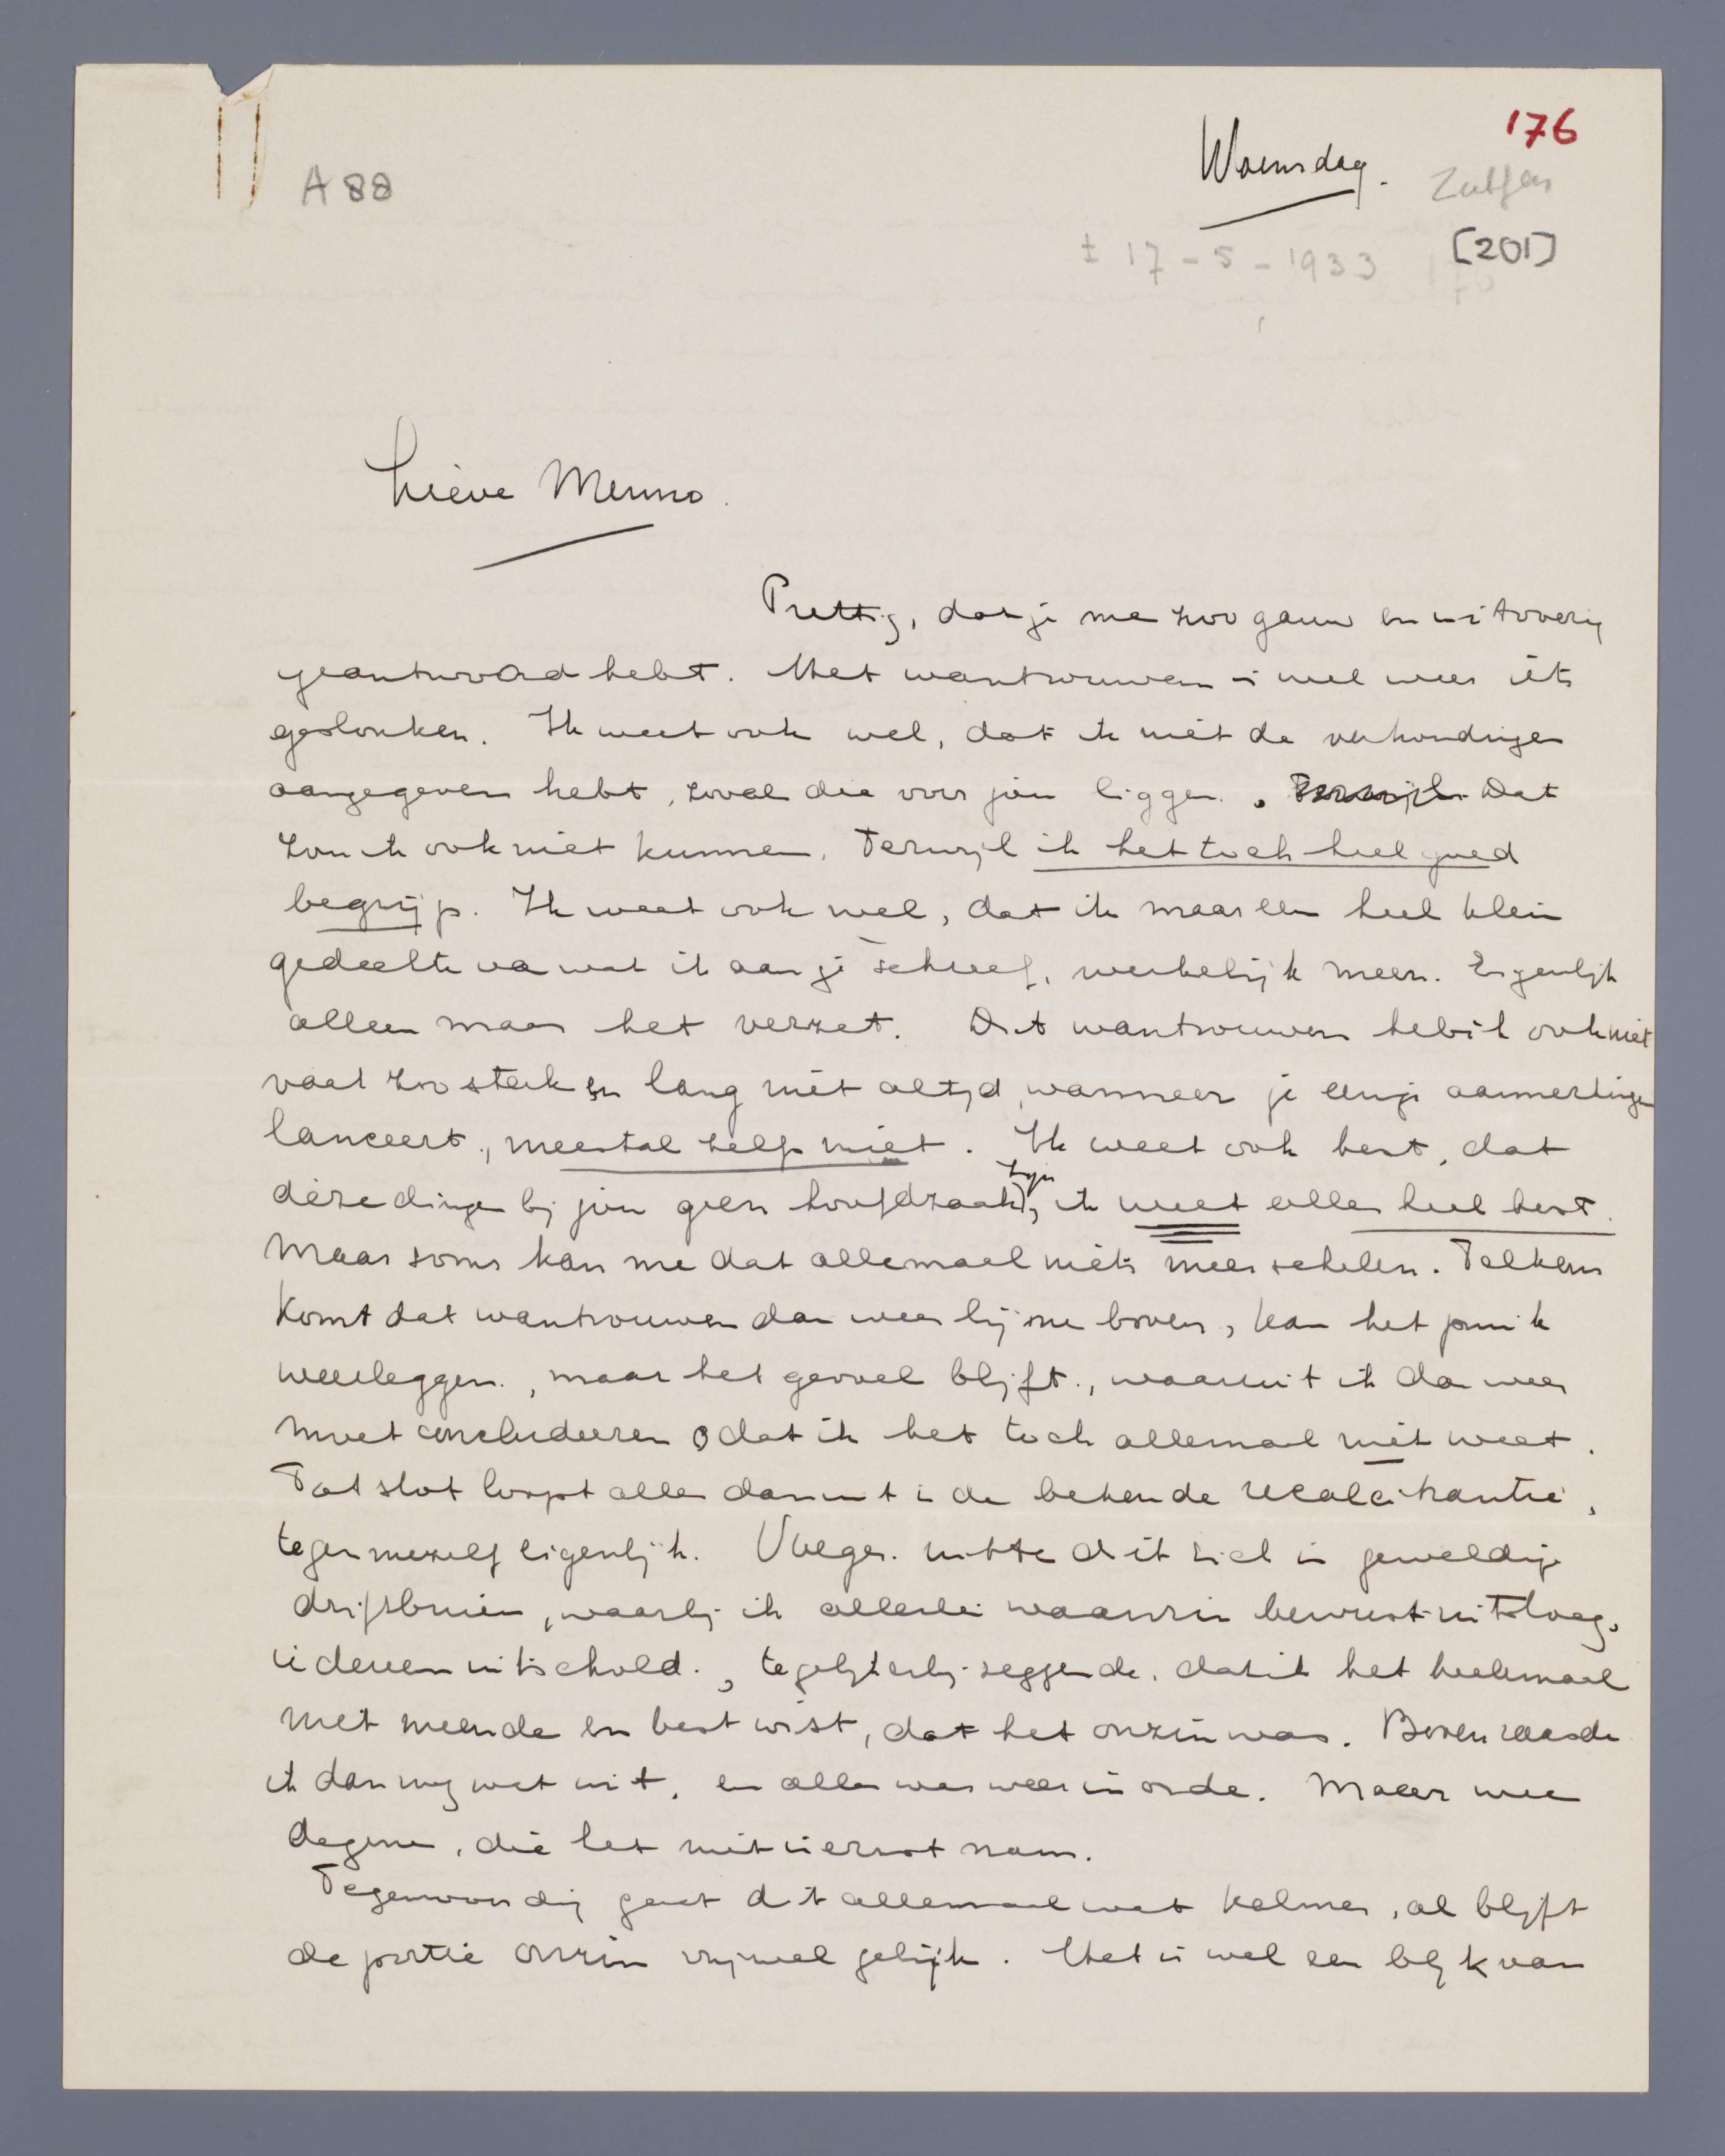 176
Woensdag.
Zutfen
A 88
[201]
± 17-5-1933
Lieve Menno.
Prettig, dat je me zoo gauw en uitvoerig
geantwoord hebt. Het wantrouwen is wel weer iets
geslonken. Ik weet ook wel, dat ik niet de verhoudingen
aangegeven hebt, zooals die voor jou liggen. Dat
zou ik ook niet kunnen. Terwijl ik het toch heel goed
begrijp. Ik weet ook wel, dat ik maar een heel klein
gedeelte van wat ik aan je schreef, werkelijk meen. Eigenlijk
alleen maar het verzet. Dit wantrouwen heb ik ook niet
vaak zoo sterk en lang niet altijd, wanneer je eenige aanmerkingen
lanceert, meestal zelfs niet. Ik weet ook best, dat
deze dingen bij jou geen hoofdzaak zijn, ik weet alles heel best.
Maar soms kan me dat allemaal niets meer schelen. Telkens
komt dat wantrouwen dan weer bij me boven, kan het precies
weerleggen, maar het gevoel blijft, waaruit ik dan weer
moet concludeeren dat ik het toch allemaal niet weet.
Tot slot loopt alles dan uit in de bekende recalcitrantie,
tegen mezelf eigenlijk. Vroeger uitte dit zich in geweldige
driftbuien, waarbij ik allerlei waanzin bewust uitsloeg,
iedereen uitschold, tegelijkertijd zeggende, dat ik het heelemaal
niet meende en best wist, dat het onzin was. Boven raasde
ik dan nog wat uit, en alles was weer in orde. Maar wee
degene, die het niet in ernst nam.
Tegenwoordig gaat dit allemaal wat kalmer, al blijft
de portie onzin vrijwel gelijk. Het is wel een blijk van